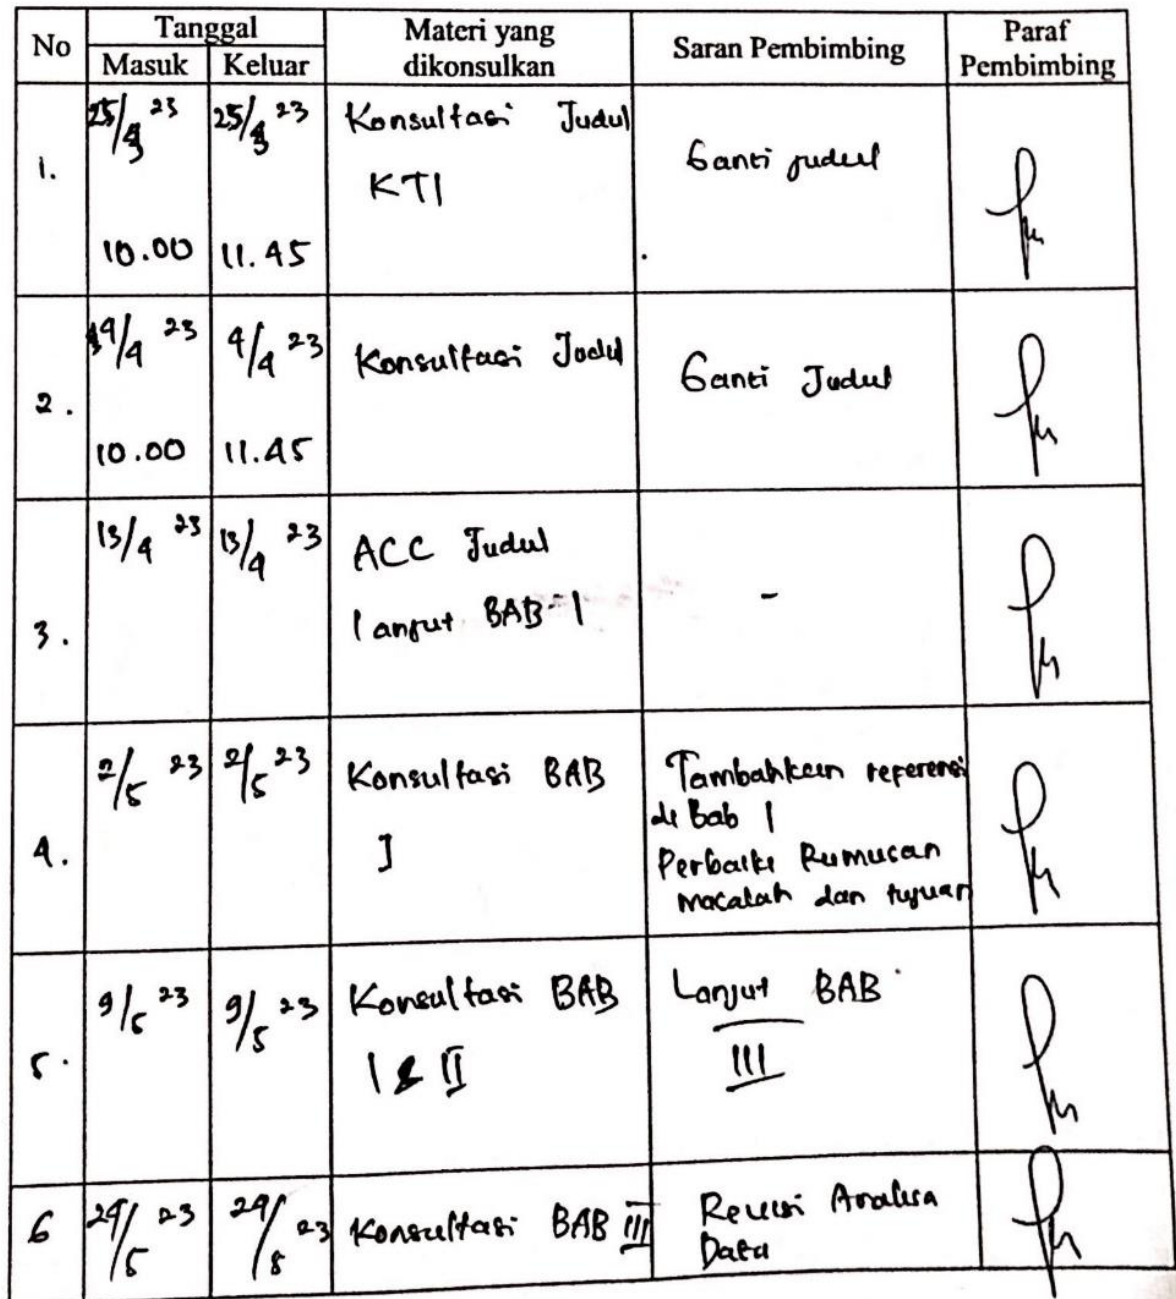 No
Tanggal
Masuk
Keluar
Materi yang
dikonsulkan
Saran Pembimbing
Paraf
Pembimbing
1.
25/3 23
25/3 23
Konsultasi Judul
KTI
Ganti judul
10.00
11.45
2.
4/4 23
4/4 23
Konsultasi Judul
Ganti Judul
10.00
11.45
3.
13/4 23
13/4 23
ACC Judul
lanjut BAB-I
-
4.
2/5 23
2/5 23
Konsultasi BAB
I
Tambahkan referensi
di Bab 1
Perbaiki Rumusan
masalah dan tujuan
5.
9/5 23
9/5 23
Konsultasi BAB
I & II
Lanjut BAB
III
6
24/5 23
24/5 23
Konsultasi BAB III
Revisi Analisa
Data